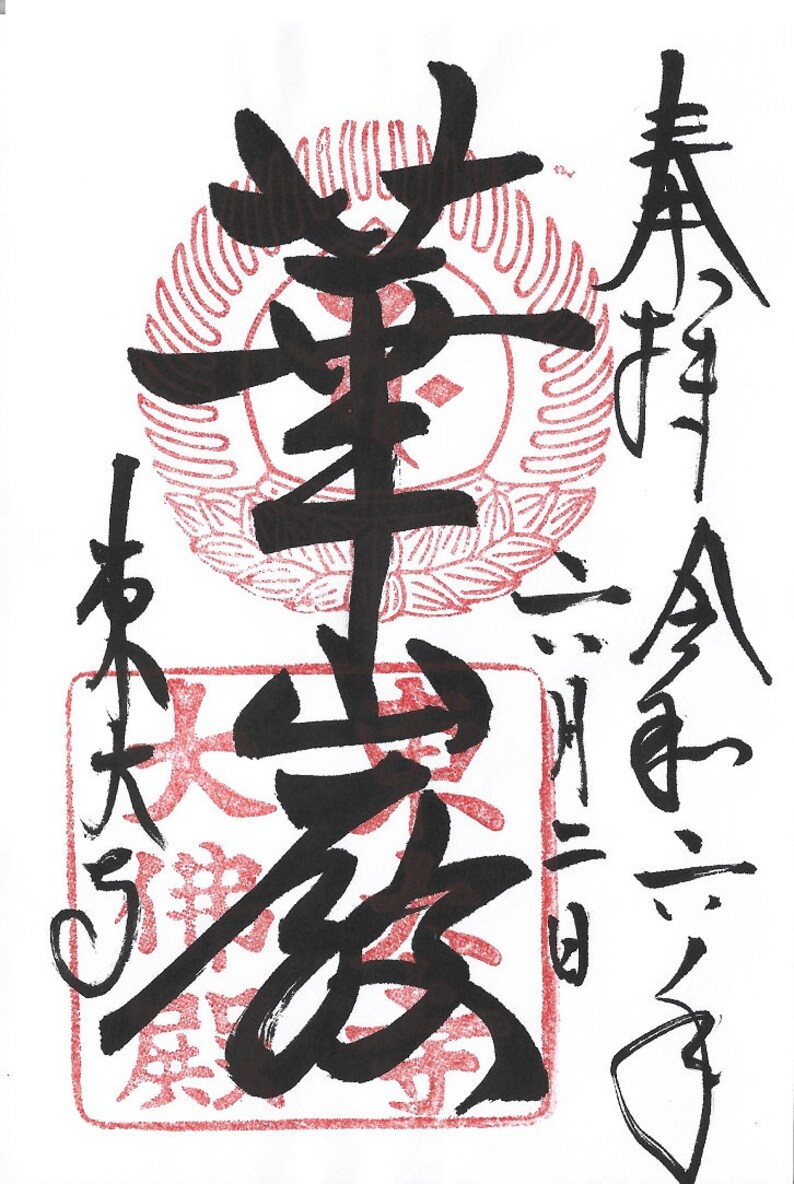 奉拝 令和六年
六月二日
華厳
東大寺
東大寺
大佛殿